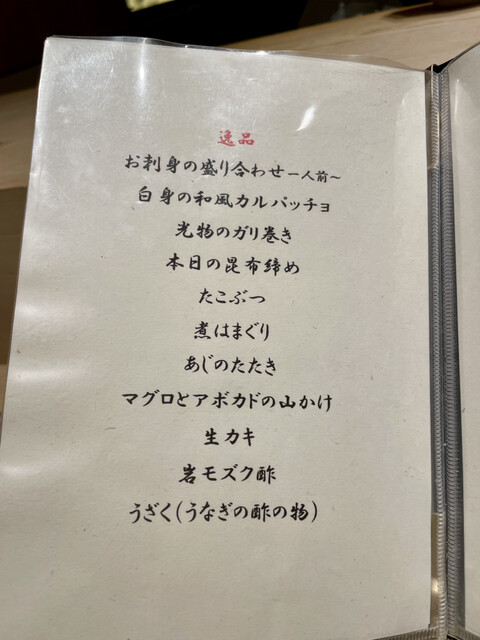 逸品
お刺身の盛り合わせ一人前～
白身の和風カルパッチョ
光物のガリ巻き
本日の昆布締め
たこぶつ
煮はまぐり
あじのたたき
マグロとアボカドの山かけ
生カキ
岩モズク酢
うざく(うなぎの酢の物)